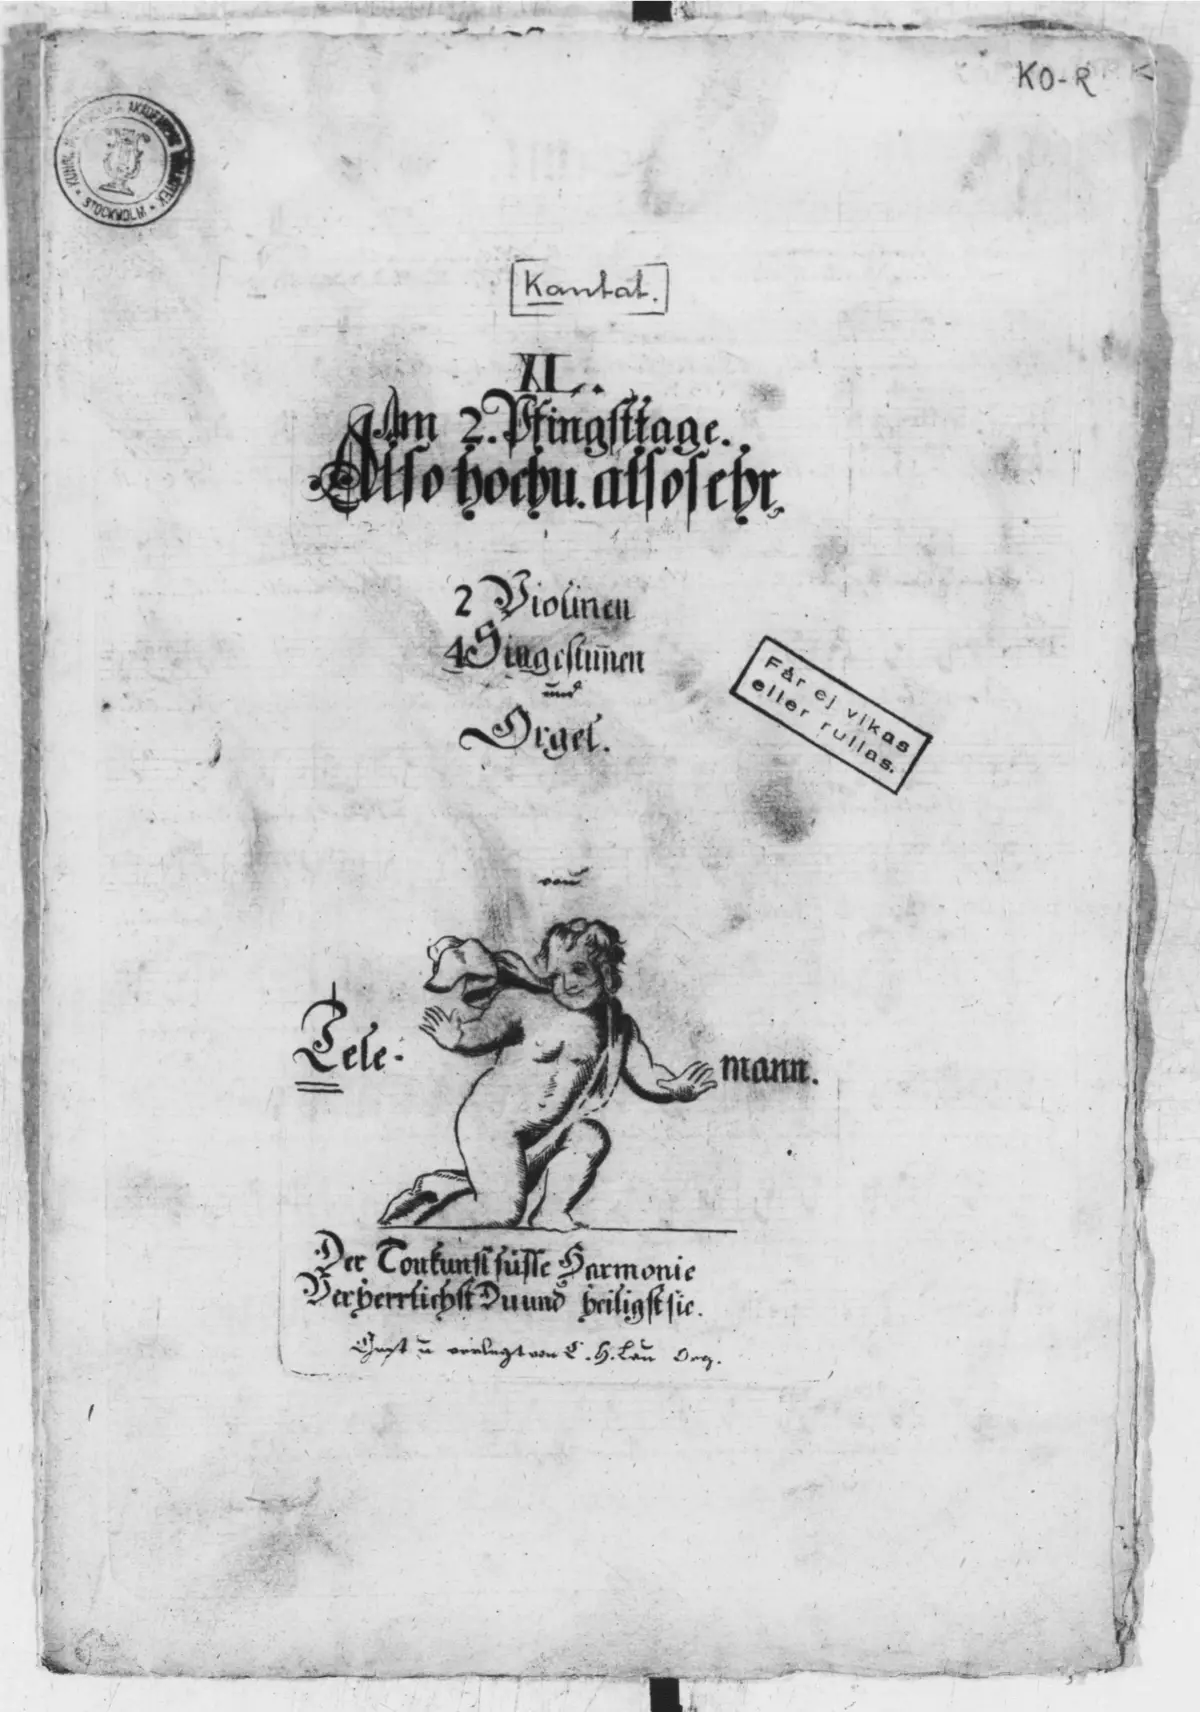 KO-R
KUNGL. MUSIKALISKA AKADEMIENS BIBLIOTEK
* STOCKHOLM *
[Kantat.]
XL.
Am 2. Pfingsttage.
Also hoch u. also sehr
2 Violinen
4 Singestim̄en
und
Orgel.
Får ej vikas
eller rullas.
von
Tele-
mann.
Der Tonkunst süsse Harmonie
Verherrlichst Du und heiligst sie.
u verlegt von C. H. Lau Org.